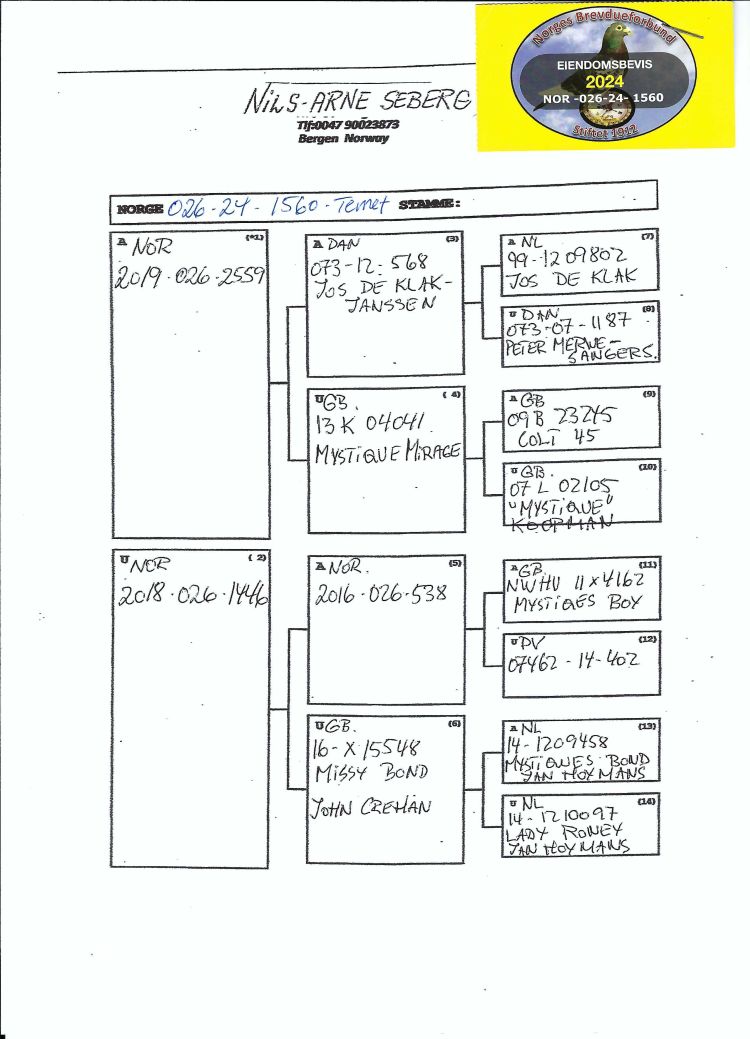 Norges Brevdueforbund
EIENDOMSBEVIS
2024
NOR -026-24- 1560
Stiftet 1912
NILS-ARNE SEBERG
Tlf:0047 90023873
Bergen Norway
NORGE 026-24-1560-Temet STAMME:
A NOR (*1)
2019-026-2559
A DAN (3)
073-12-568
JOS DE KLAK-
JANSSEN
A NL (7)
99-1209802
JOS DE KLAK
U DAN (8)
073-07-1187
PETER MERNE-
SANGERS.
U GB. (4)
13 K 04041
MYSTIQUE MIRAGE
A GB (9)
09B 23245
COLT 45
U GB. (10)
07 L 02105
"MYSTIQUE"
KOOPMAN
U NOR (2)
2018-026-1446
A NOR. (5)
2016-026-538
A GB. (11)
NWHU 11x4162
MYSTIQES BOY
U PV (12)
07462-14-402
U GB. (6)
16-X15548
MISSY BOND
JOHN CREHAN
A NL (13)
14-1209458
MYSTIQUES BOND
JAN HOYMANS
U NL (14)
14-1210097
LADY RONEY
JAN HOYMANS